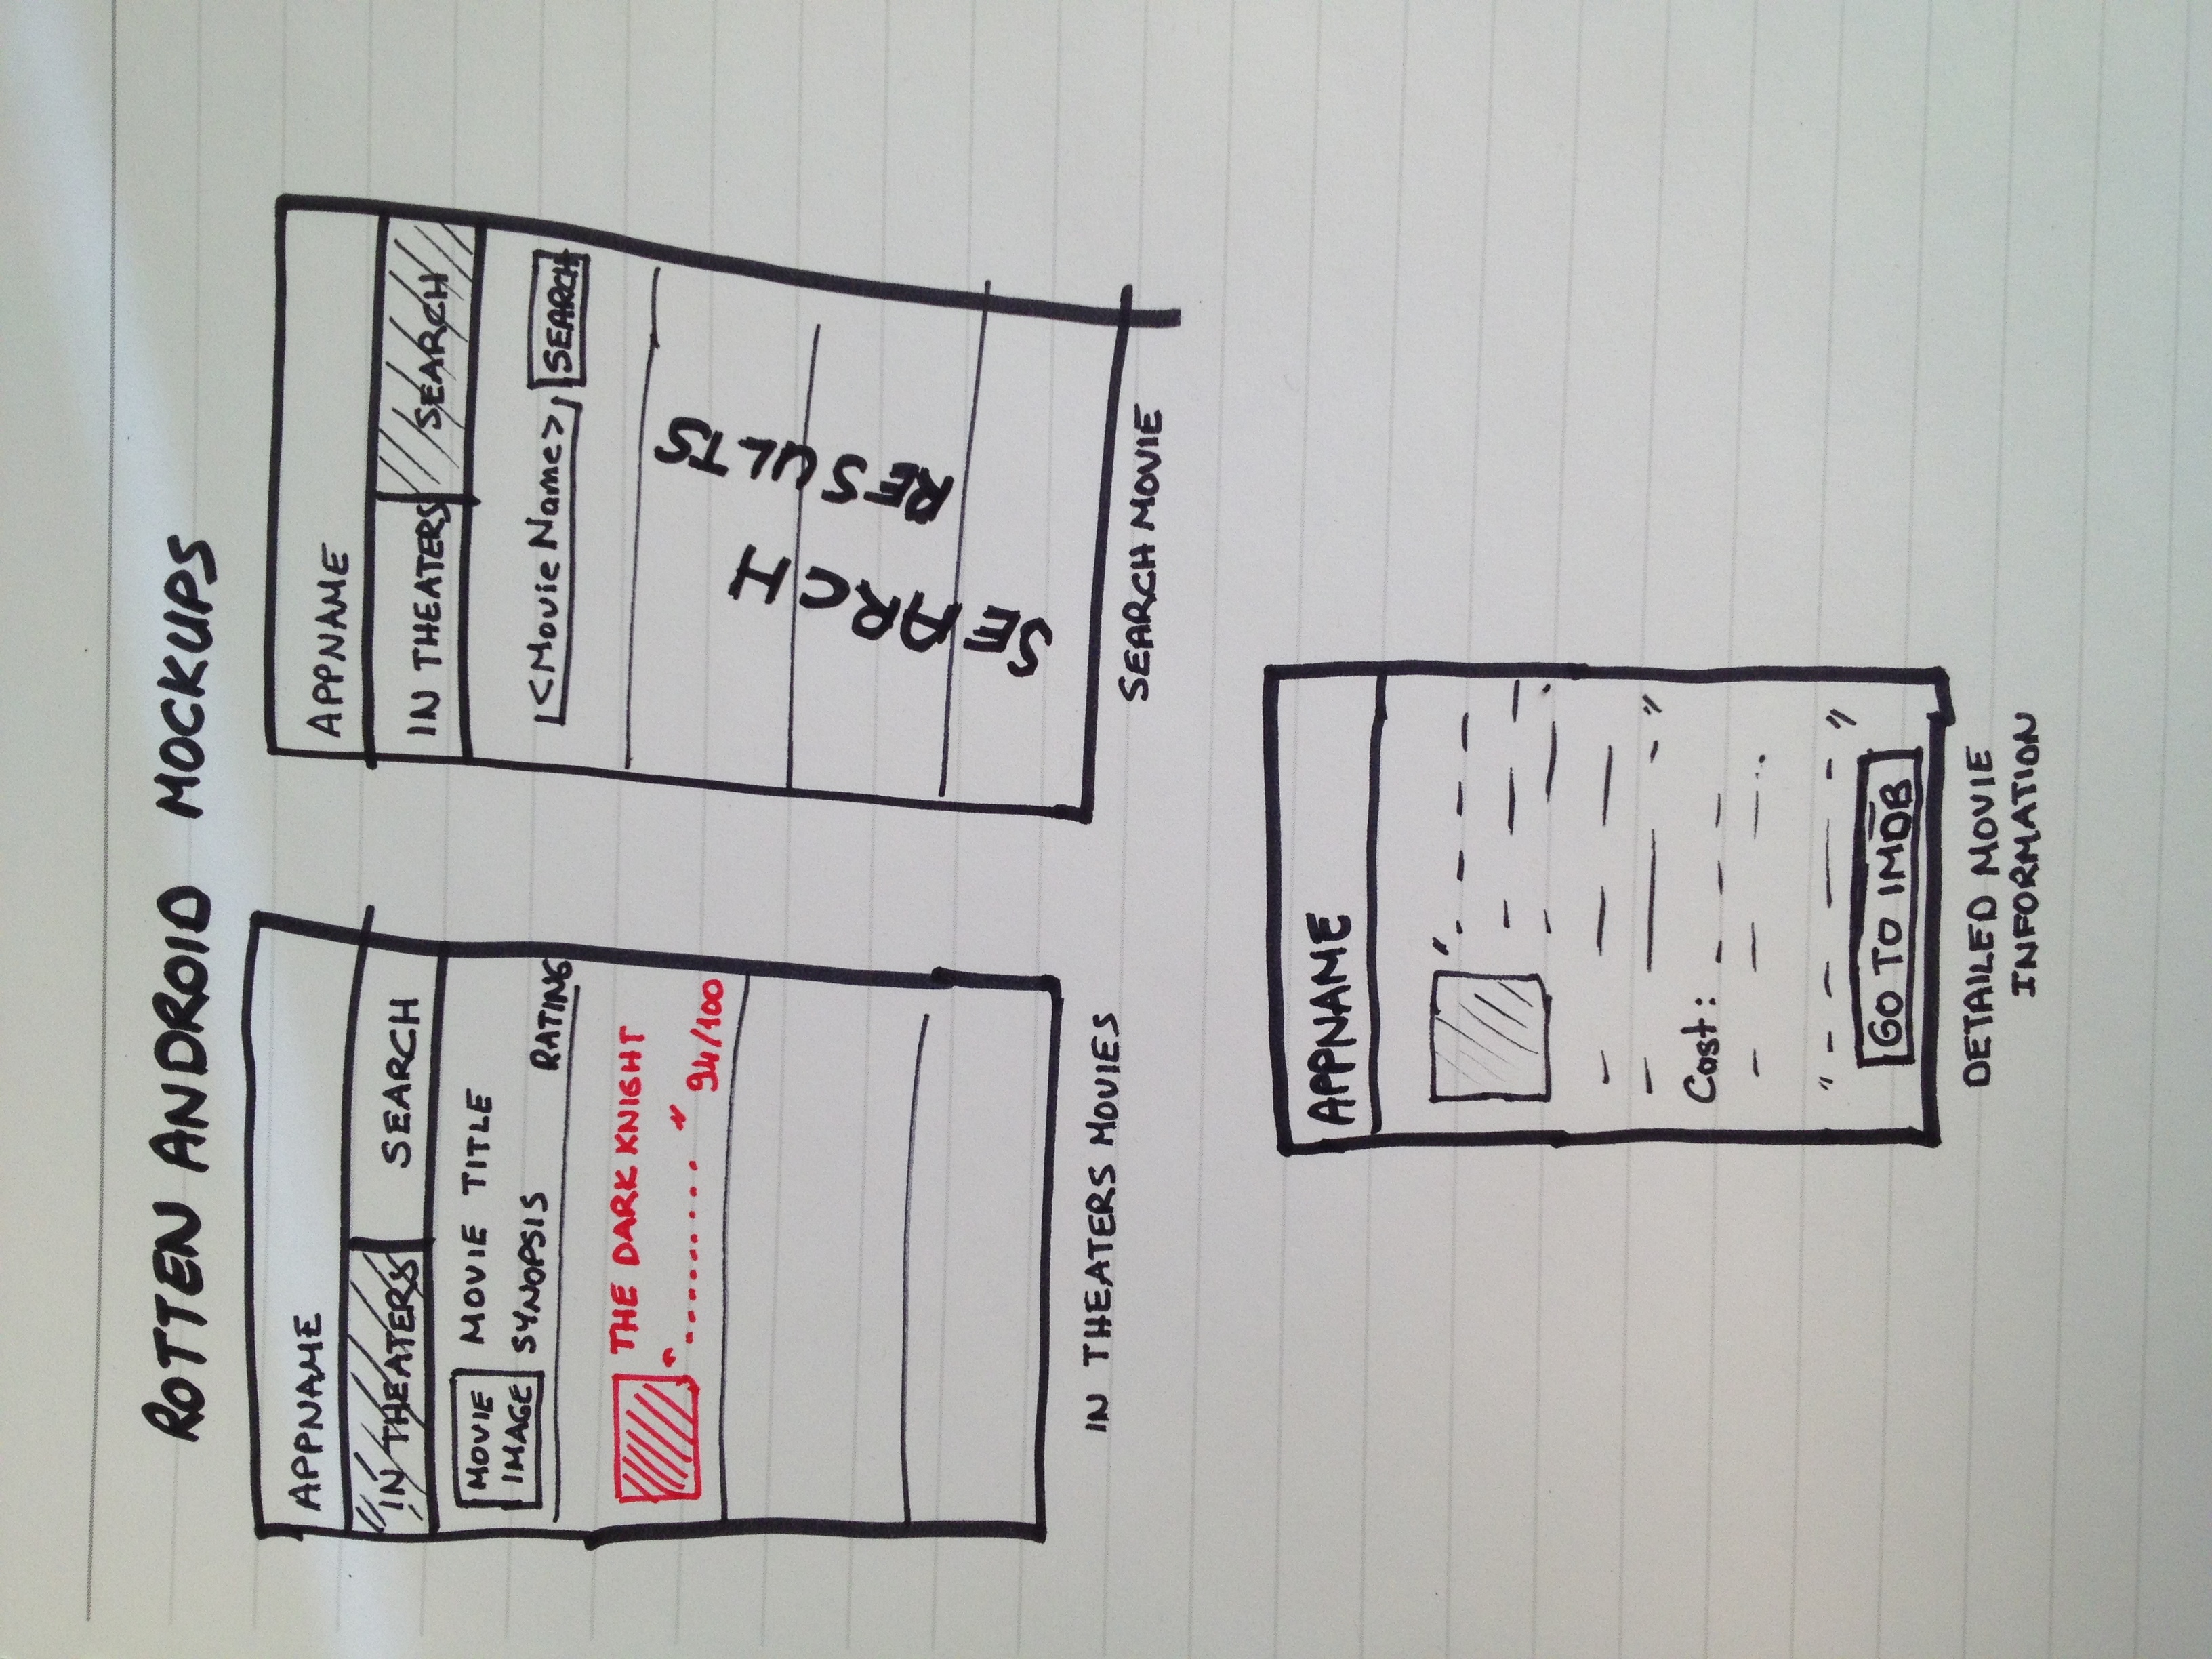 ROTTEN ANDROID MOCKUPS
APPNAME
IN THEATERS SEARCH
MOVIE
IMAGE
MOVIE TITLE
SYNOPSIS
RATING
THE DARK KNIGHT
"........."
94/100
IN THEATERS MOVIES
APPNAME
IN THEATERS SEARCH
<Movie Name> SEARCH
SEARCH
RESULTS
SEARCH MOVIE
APPNAME
Cast:
GO TO IMDB
DETAILED MOVIE
INFORMATION